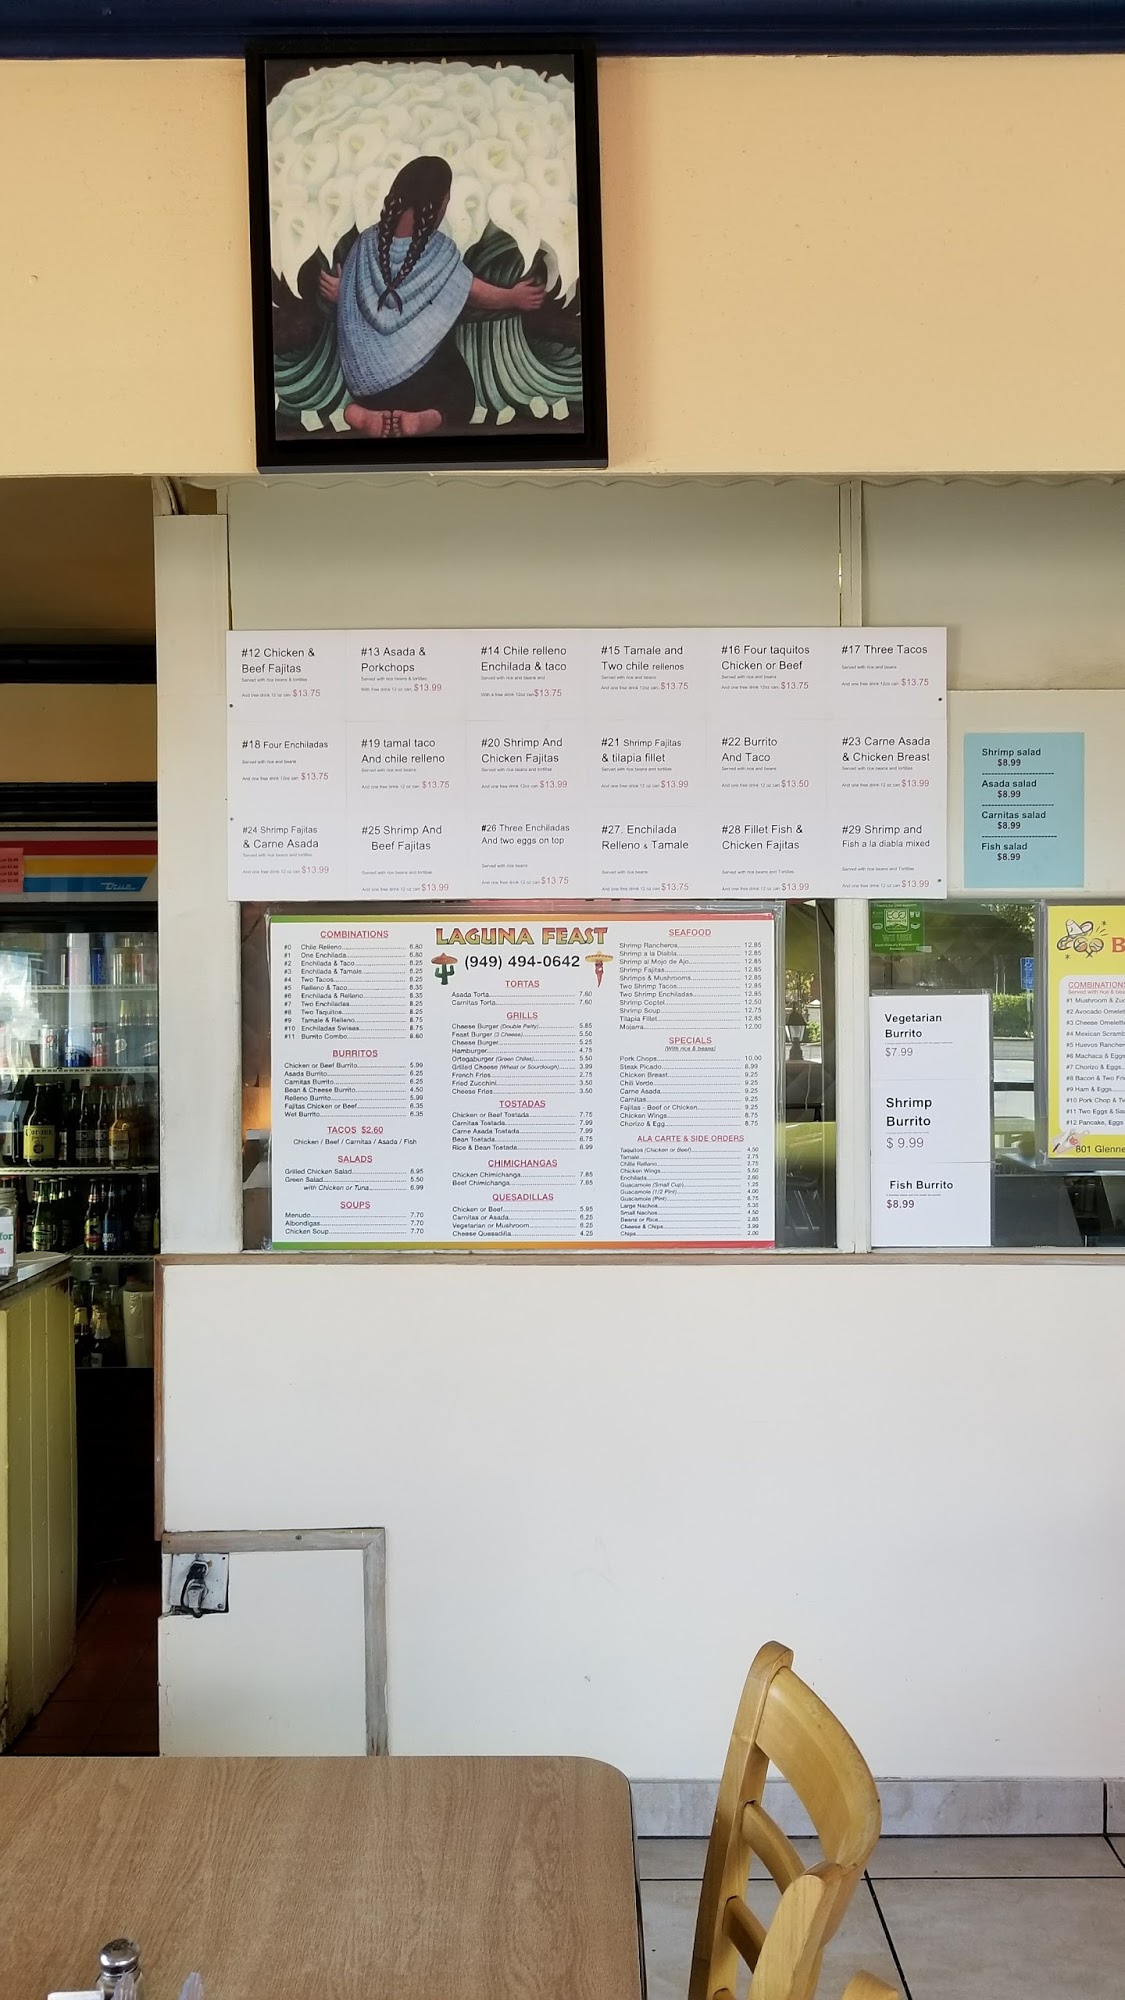 #12 Chicken &
Beef Fajitas
Served with rice beans & tortillas
And one free drink 12 oz can $13.75
#13 Asada &
Porkchops
Served with rice beans & tortillas
With free drink 12 oz can $13.99
#14 Chile relleno
Enchilada & taco
Served with rice and beans and
With a free drink 12oz can $13.75
#15 Tamale and
Two chile rellenos
Served with rice and beans
And one free drink 12oz can $13.75
#16 Four taquitos
Chicken or Beef
Served with rice and beans
And one free drink 12oz can $13.75
#17 Three Tacos
Served with rice and beans
And one free drink 12oz can $13.75
#18 Four Enchiladas
Served with rice and beans
And one free drink 12oz can $13.75
#19 tamal taco
And chile relleno
Served with rice and beans
And one free drink 12 oz can $13.75
#20 Shrimp And
Chicken Fajitas
Served with rice beans and tortillas
And one free drink 12oz can $13.99
#21 Shrimp Fajitas
& tilapia fillet
Served with rice beans and tortillas
And one free drink 12 oz can $13.99
#22 Burrito
And Taco
Served with rice and beans
And one free drink 12 oz can $13.50
#23 Carne Asada
& Chicken Breast
Served with rice beans and tortillas
And one free drink 12 oz can $13.99
#24 Shrimp Fajitas
& Carne Asada
Served with rice beans and tortillas
And one free drink 12 oz can $13.99
#25 Shrimp And
Beef Fajitas
And one free drink 12 oz can $13.99
#26 Three Enchiladas
And two eggs on top
Served with rice and beans
And one free drink 12 oz can $13.75
#27. Enchilada
Relleno & Tamale
Served with rice and beans
And one free drink 12 oz can $13.75
#28 Fillet Fish &
Chicken Fajitas
Served with rice beans and Tortillas
And one free drink 12 oz can $13.99
#29 Shrimp and
Fish a la diabla mixed
Served with rice beans and Tortillas
And one free drink 12 oz can $13.99
Shrimp salad
$8.99
Asada salad
$8.99
Carnitas salad
$8.99
Fish salad
$8.99
LAGUNA FEAST
(949) 494-0642
COMBINATIONS
#0 Chile Relleno 6.80
#1 One Enchilada 6.80
#2 Enchilada & Taco 8.25
#3 Enchilada & Tamale 8.25
#4 Two Tacos 8.25
#5 Relleno & Taco 8.35
#6 Enchilada & Relleno 8.35
#7 Two Enchiladas 8.25
#8 Two Taquitos 8.25
#9 Tamale & Relleno 8.75
#10 Enchiladas Swisas 8.75
#11 Burrito Combo 8.60
BURRITOS
Chicken or Beef Burrito 5.99
Asada Burrito 6.25
Carnitas Burrito 6.25
Bean & Cheese Burrito 4.50
Relleno Burrito 5.99
Fajitas Chicken or Beef 6.35
Wet Burrito 6.35
TACOS $2.60
Chicken / Beef / Carnitas / Asada / Fish
SALADS
Grilled Chicken Salad 6.95
Green Salad 5.50
with Chicken or Tuna 6.99
SOUPS
Menudo 7.70
Albondigas 7.70
Chicken Soup 7.70
TORTAS
Asada Torta 7.60
Carnitas Torta 7.60
GRILLS
Cheese Burger (Double Patty) 5.85
Feast Burger (3 Cheese) 5.50
Cheese Burger 5.25
Hamburger 4.75
Ortegaburger (Green Chiles) 5.50
Grilled Cheese (Wheat or Sourdough) 3.99
French Fries 2.75
Fried Zucchini 3.50
Cheese Fries 3.50
TOSTADAS
Chicken or Beef Tostada 7.75
Carnitas Tostada 7.99
Carne Asada Tostada 7.99
Bean Tostada 6.75
Rice & Bean Tostada 6.99
CHIMICHANGAS
Chicken Chimichanga 7.85
Beef Chimichanga 7.85
QUESADILLAS
Chicken or Beef 5.95
Carnitas or Asada 6.25
Vegetarian or Mushroom 6.25
Cheese Quesadilla 4.25
SEAFOOD
Shrimp Rancheros 12.85
Shrimp a la Diabla 12.85
Shrimp al Mojo de Ajo 12.85
Shrimp Fajitas 12.85
Shrimps & Mushrooms 12.85
Two Shrimp Tacos 12.85
Two Shrimp Enchiladas 12.85
Shrimp Coptel 12.50
Shrimp Soup 12.75
Tilapia Fillet 12.85
Mojarra 12.00
SPECIALS
(With rice & beans)
Pork Chops 10.00
Steak Picado 8.99
Chicken Breast 9.25
Chili Verde 9.25
Carne Asada 9.25
Carnitas 9.25
Fajitas - Beef or Chicken 9.25
Chicken Wings 8.75
Chorizo & Egg 8.75
ALA CARTE & SIDE ORDERS
Taquitos (Chicken or Beef) 4.50
Tamale 2.75
Chille Relleno 2.75
Chicken Wings 5.50
Enchilada 2.60
Guacamole (Small Cup) 1.25
Guacamole (1/2 Pint) 4.00
Guacamole (Pint) 6.75
Large Nachos 5.35
Small Nachos 4.50
Beans or Rice 2.85
Cheese & Chips 3.99
Chips 2.00
Vegetarian
Burrito
$7.99
Shrimp
Burrito
$ 9.99
Fish Burrito
$8.99
B
COMBINATIONS
Served with rice & bea
#1 Mushroom & Zuc
#2 Avocado Omelet
#3 Cheese Omelette
#4 Mexican Scramb
#5 Huevos Rancher
#6 Machaca & Eggs
#7 Chorizo & Eggs
#8 Bacon & Two Fri
#9 Ham & Eggs
#10 Pork Chop & Tw
#11 Two Eggs & Sau
#12 Pancake, Eggs
801 Glenne
for
s.